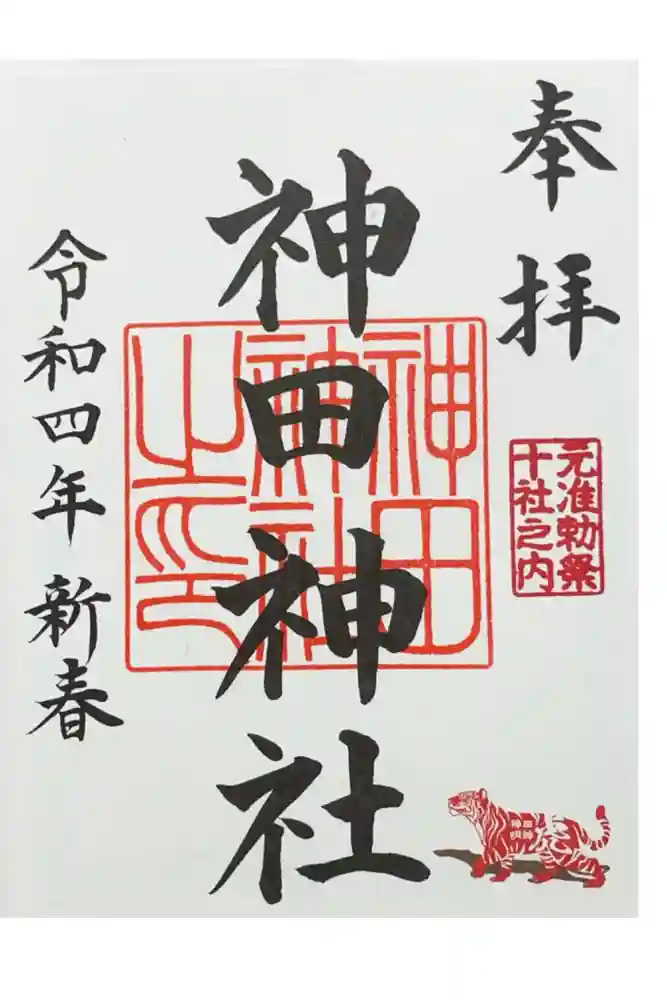 奉拝
元准勅祭
十社之内
神田神社
神田
神社
之印
令和四年 新春
神田
明神